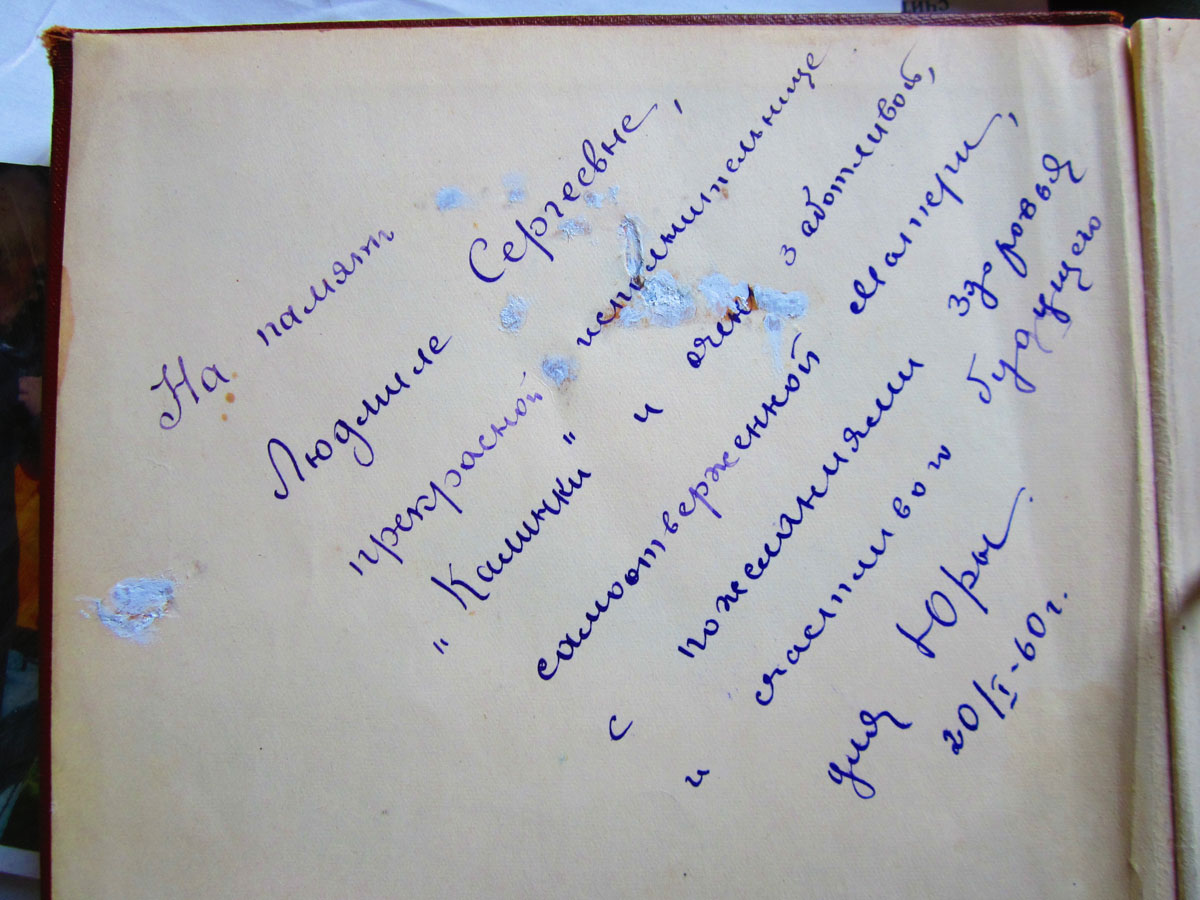 На память
Людмиле Сергеевне,
прекрасной исполнительнице
"Калинки" и очень заботливой,
самоотверженной матери,
с пожеланиями здоровья
и счастливого будущего
для Юры.
20/I-60г.